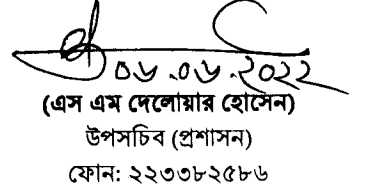 ০৬.০৬.২০২২
(এস এম দেলোয়ার হোসেন)
উপসচিব (প্রশাসন)
ফোন: ২২৩৩৮২৫৮৬